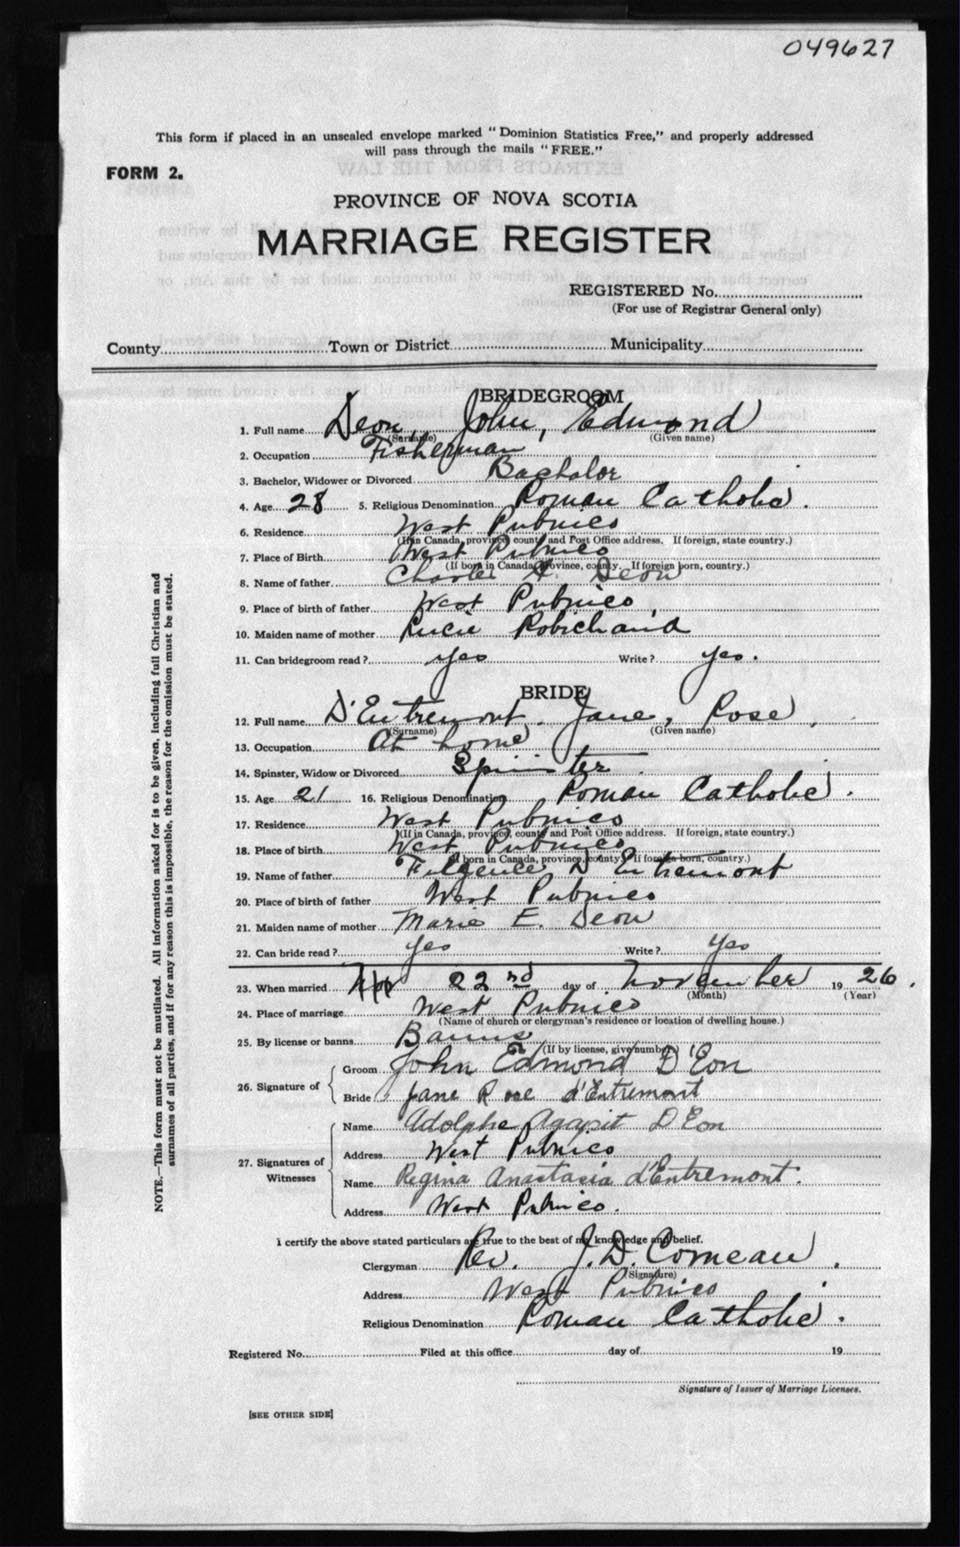 049627
This form if placed in an unsealed envelope marked "Dominion Statistics Free," and properly addressed
will pass through the mails "FREE."
FORM 2.
PROVINCE OF NOVA SCOTIA
MARRIAGE REGISTER
REGISTERED No.
(For use of Registrar General only)
County Town or District Municipality
BRIDEGROOM
1. Full name Deon, John, Edmond
(Surname) (Given name)
2. Occupation Fisherman
3. Bachelor, Widower or Divorced Bachelor
4. Age 28 5. Religious Denomination Roman Catholic.
6. Residence West Pubnico
(If in Canada, province, county and Post Office address. If foreign, state country.)
7. Place of Birth West Pubnico
(If born in Canada, province, county. If foreign born, country.)
8. Name of father Charles Deon
9. Place of birth of father West Pubnico,
10. Maiden name of mother Lucie Robichaud
11. Can bridegroom read? yes Write? yes.
BRIDE
12. Full name D'Entremont. Jane, Rose,
(Surname) (Given name)
13. Occupation At home
14. Spinster, Widow or Divorced Spinster
15. Age 21 16. Religious Denomination Roman Catholic.
17. Residence West Pubnico
(If in Canada, province, county and Post Office address. If foreign, state country.)
18. Place of birth West Pubnico
(If born in Canada, province, county. If foreign born, country.)
19. Name of father D'Entremont
20. Place of birth of father West Pubnico
21. Maiden name of mother Marie E. Deon
22. Can bride read? yes Write? yes
23. When married 22nd day of November 1926.
(Month) (Year)
24. Place of marriage West Pubnico
(Name of church or clergyman's residence or location of dwelling house.)
25. By license or banns Banns
(If by license, give number)
26. Signature of Groom John Edmond D'Eon
Bride Jane Rose d'Entremont
27. Signatures of Witnesses Name Adolphe Agapit D'Eon
Address West Pubnico
Name Regina Anastasia d'Entremont.
Address West Pubnico.
I certify the above stated particulars are true to the best of my knowledge and belief.
Clergyman Rev. J. D. Comeau,
(Signature)
Address West Pubnico
Religious Denomination Roman Catholic.
Registered No. Filed at this office day of 19
Signature of Issuer of Marriage Licenses.
[SEE OTHER SIDE]
NOTE.—This form must not be mutilated. All information asked for is to be given, including full Christian and
surnames of all parties, and if for any reason this is impossible, the reason for the omission must be stated.